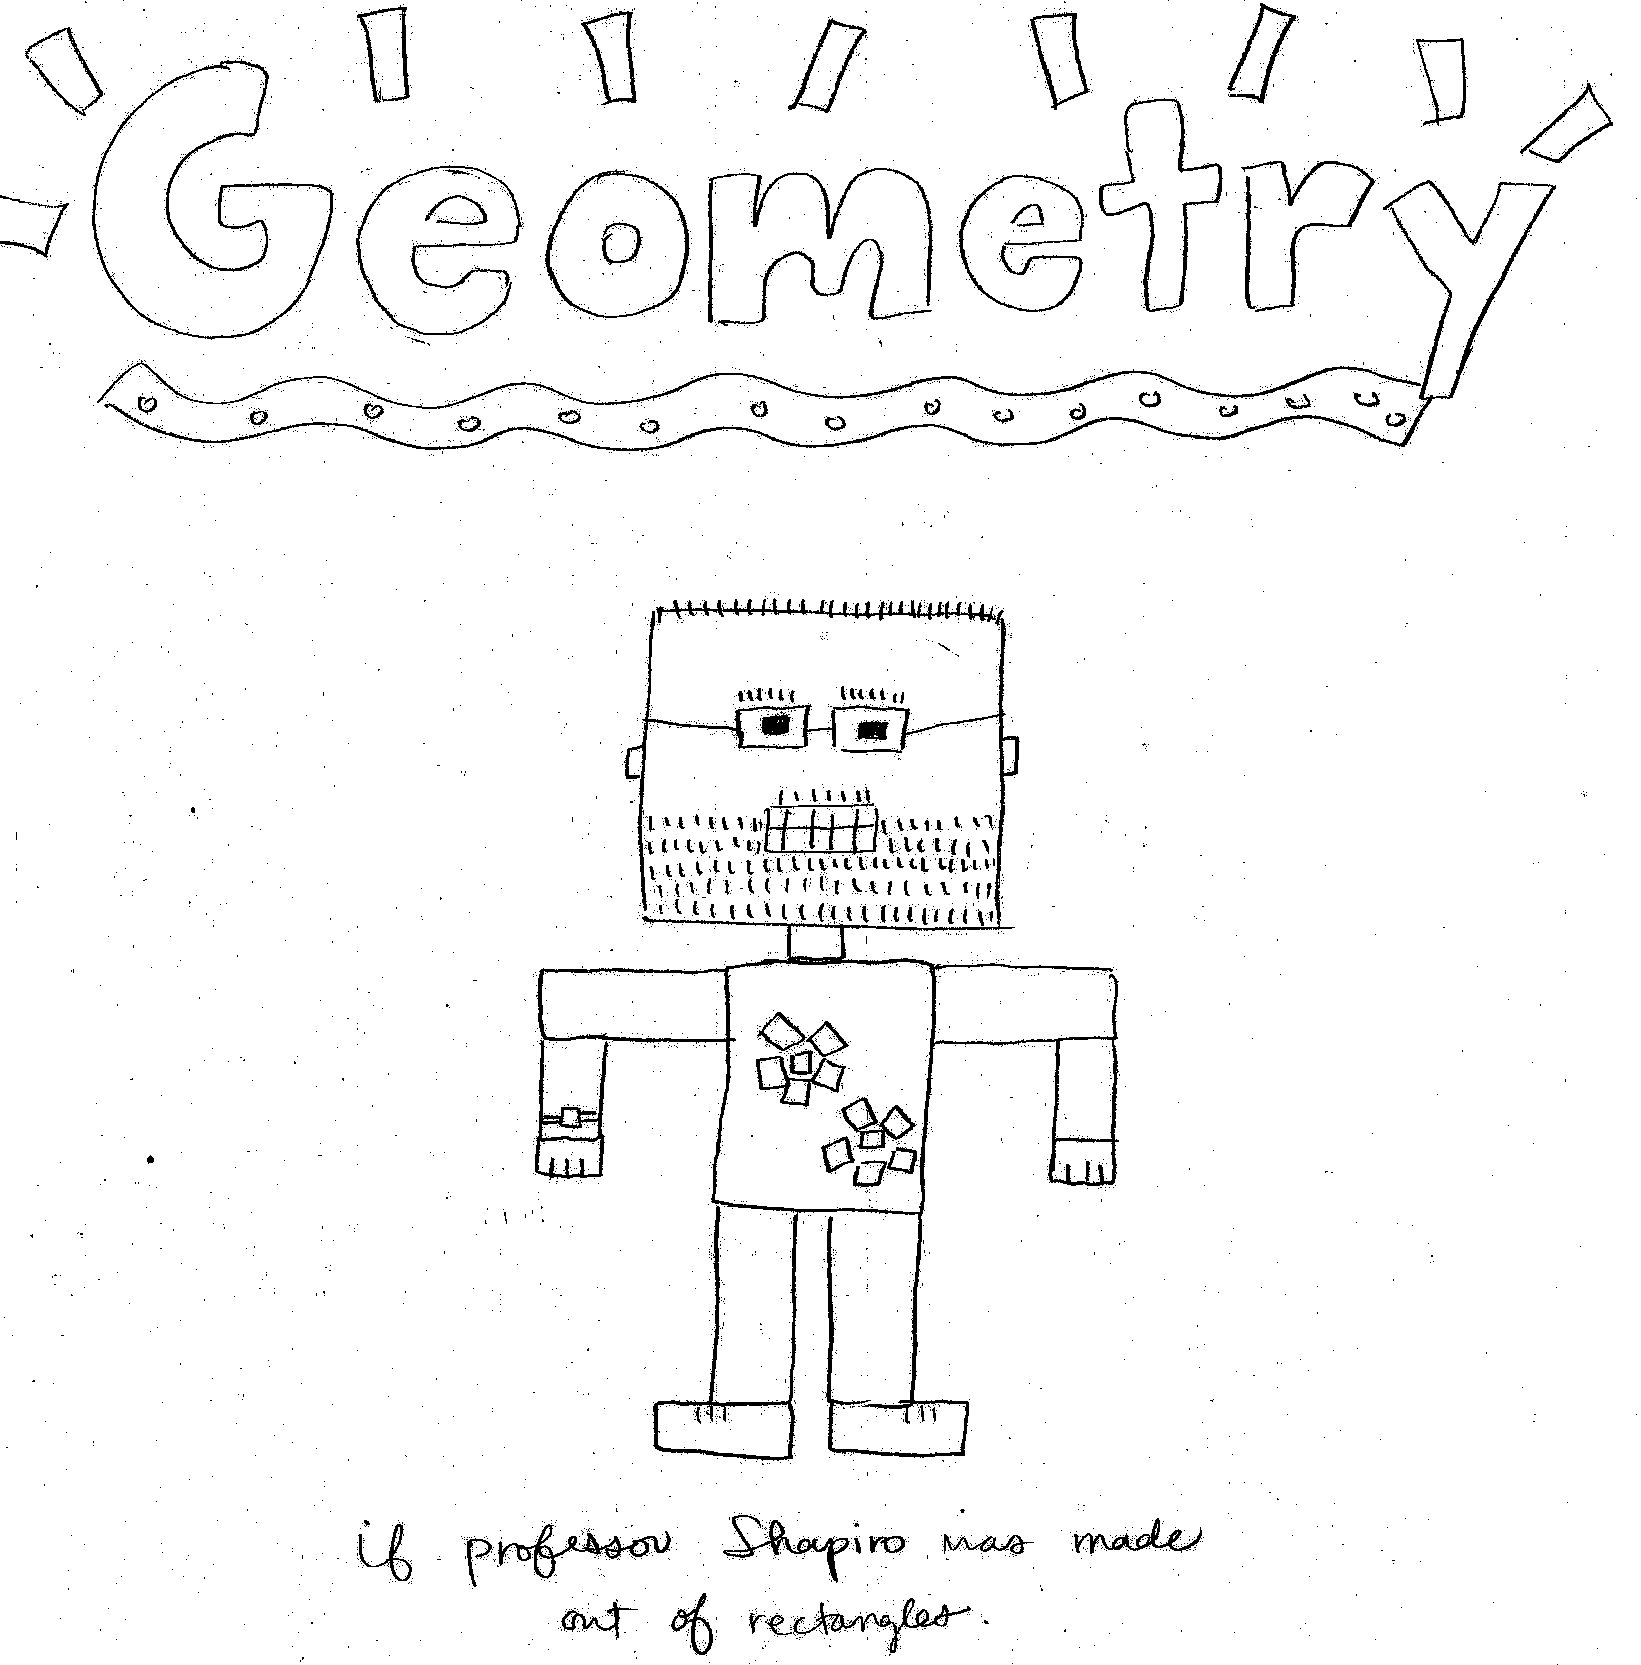 Geometry
if professor Shapiro was made
out of rectangles.